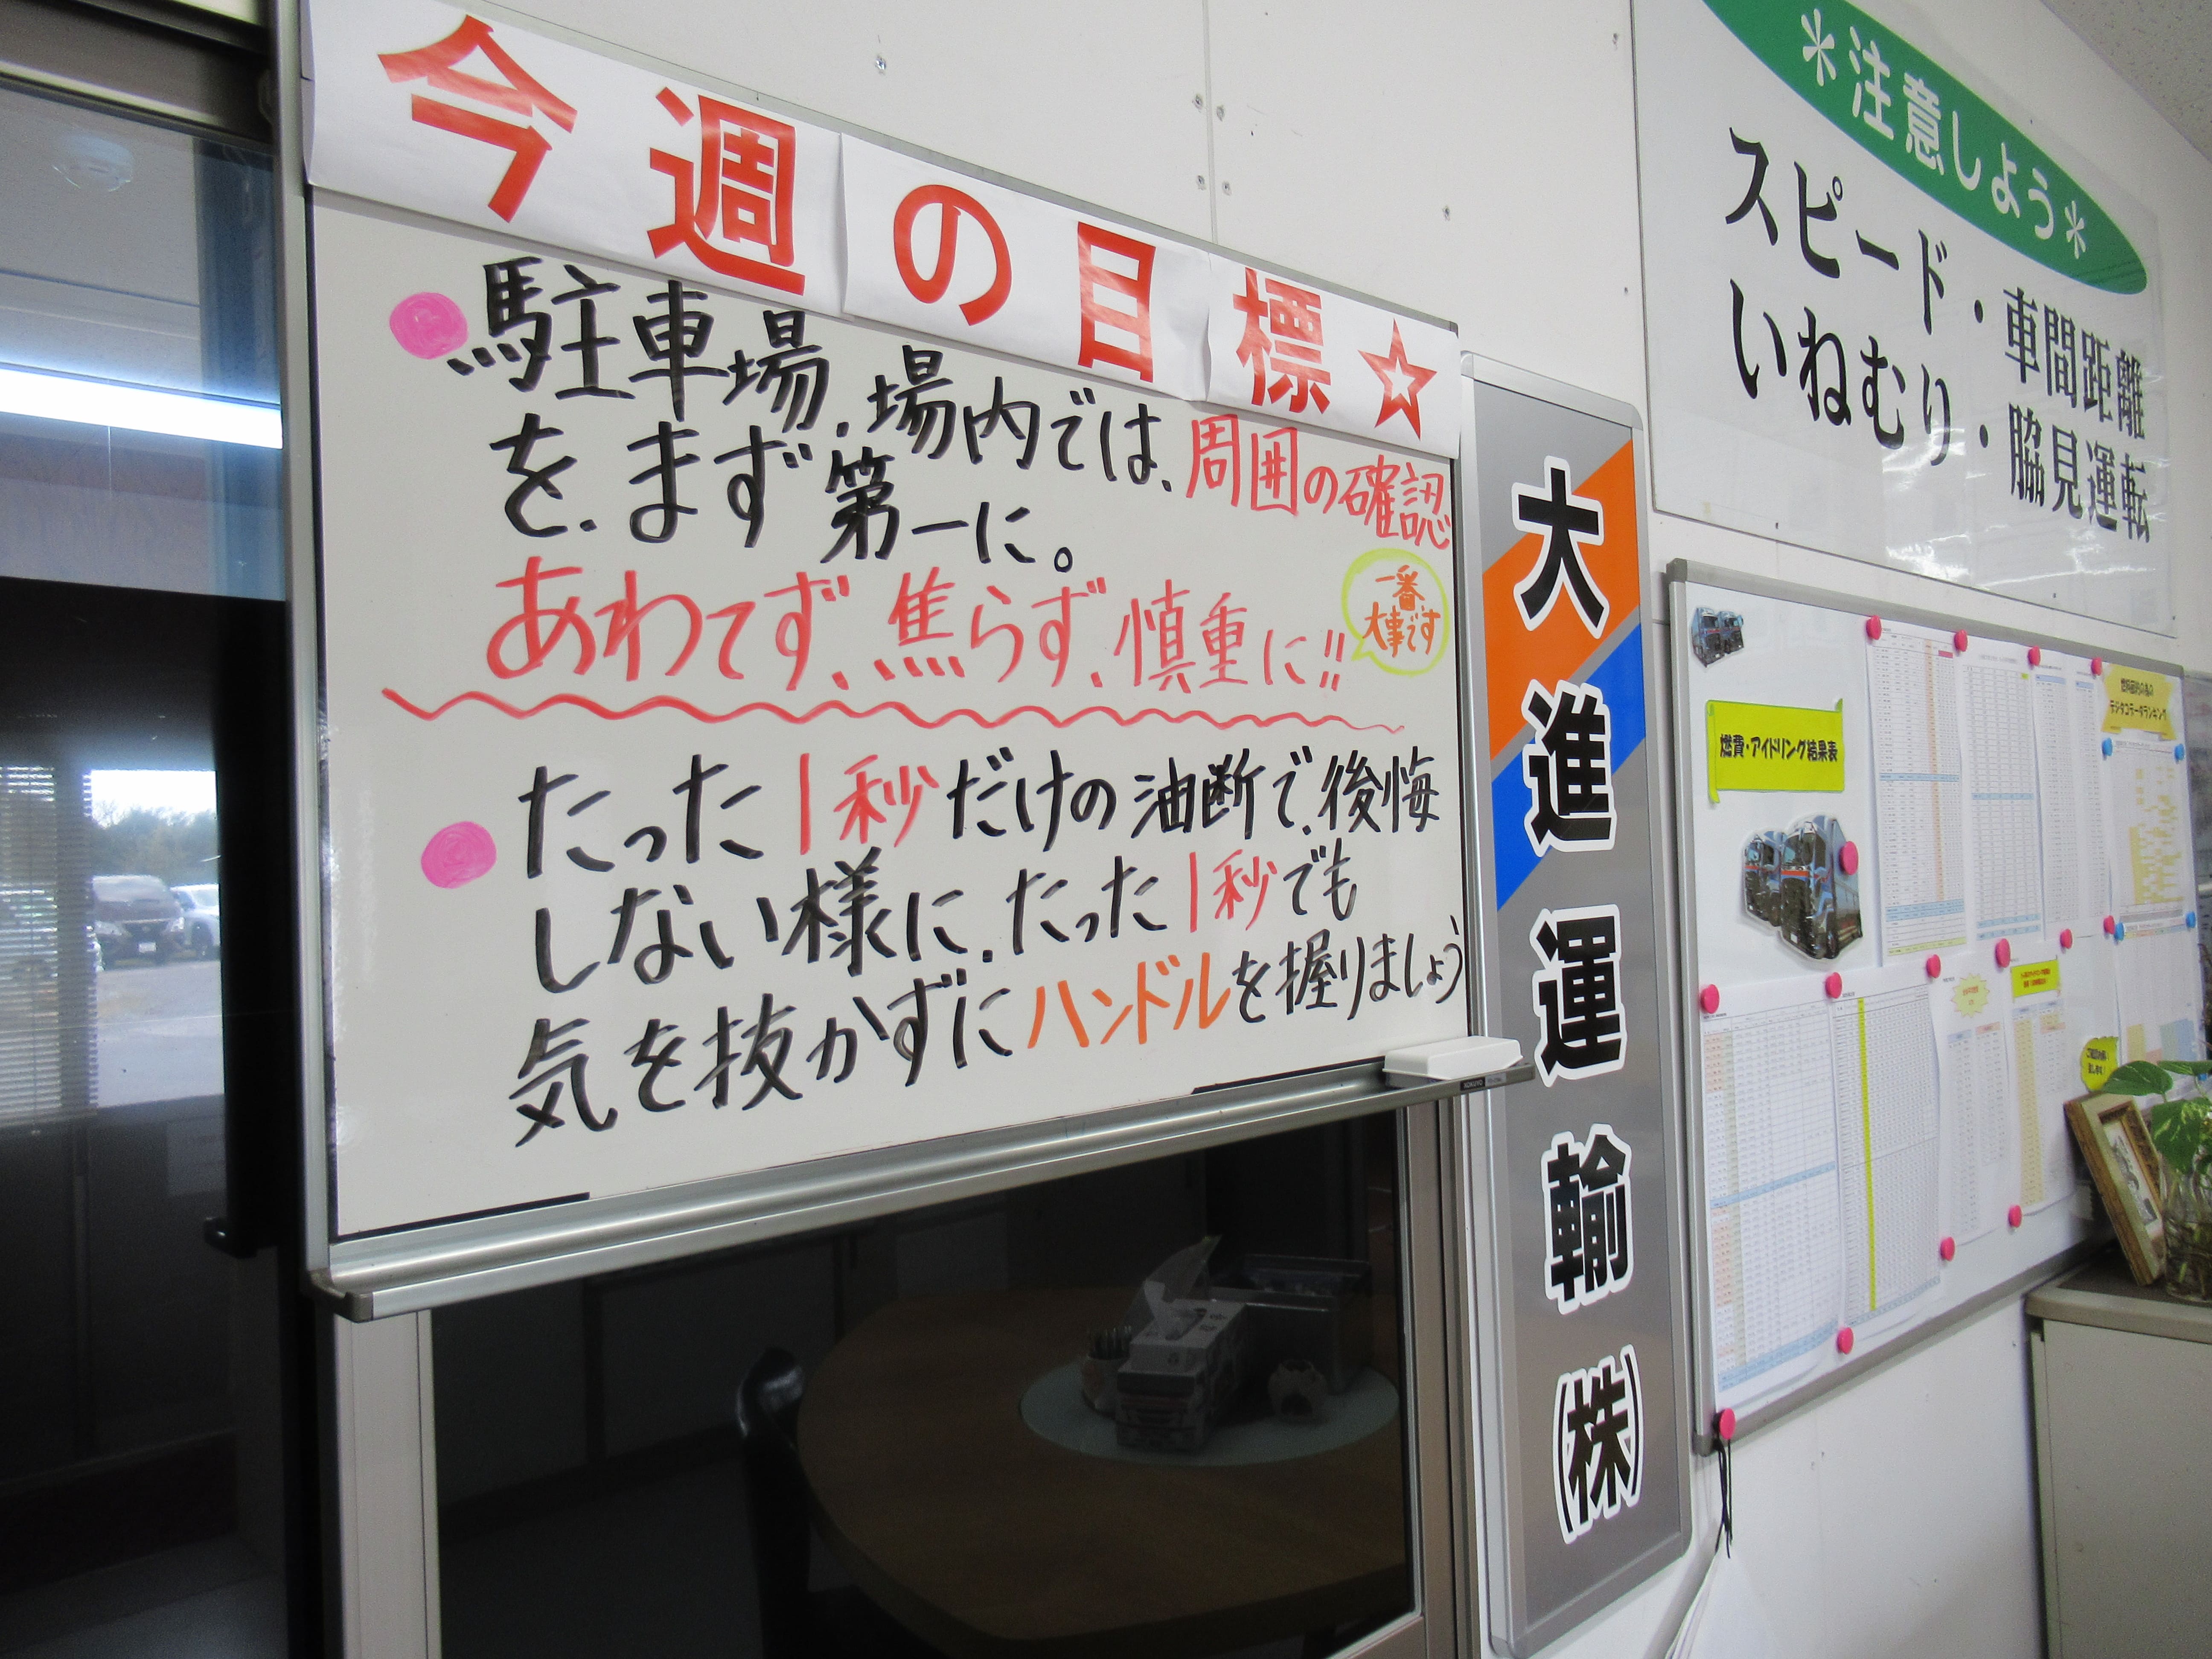 今週の目標☆
駐車場、場内では、周囲の確認
を、まず第一に。
あわてず、焦らず、慎重に!!
一番
大事です
たった1秒だけの油断で、後悔
しない様に、たった1秒でも
気を抜かずにハンドルを握りましょう
KOKUYO
大進運輸㈱
＊注意しよう＊
スピード・車間距離
いねむり・脇見運転
燃費・アイドリング結果表